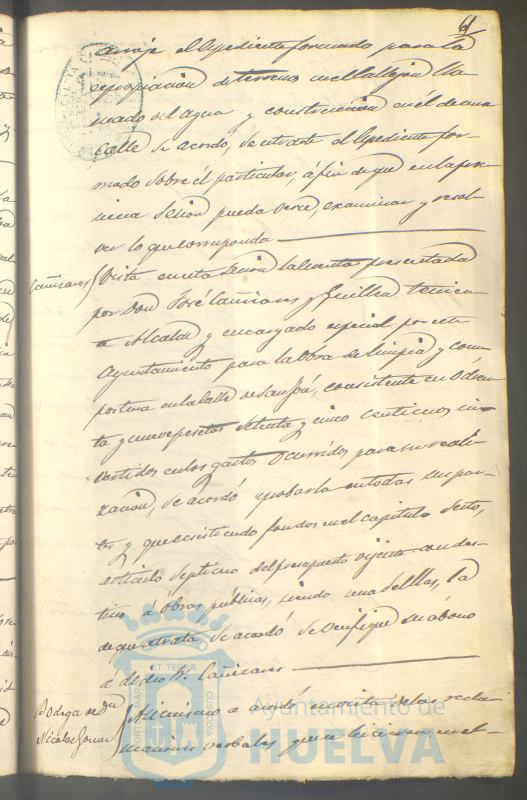 61
arroje el Espediente formado para la
espropiacion de terrenos en el Callejon lla-
mado del Agua y construccion en él de una
Calle se acordó, se estracte el Espediente for-
mado sobre el particular, á fin de que en la pro-
sima Sesion pueda verse, examinar y resol-
ver lo que corresponda
Cañizares
Vista en esta Sesion la Cuenta presentada
por Don José Cañizares y Guillen teniente
Alcalde y encargado especial por este
Ayuntamiento para la Obra de limpia y com-
postura en la Calle de San José, consistente en Ochen-
ta y nueve pesetas Setenta y cinco centimos in-
vertidos en los gastos Ocurridos para su reali-
zacion, se acordó aprobarla en todas sus par-
tes, y que ecsistiendo fondos en el Capitulo Sesto,
articulo Septimo del presupuesto vijente con des-
tino á Obras públicas, siendo una de ellas, la
de que se trata, se acordó se verifique su abono
á dicho Sr. Cañizares
Bodega de Dn
Nicolas Gomez
Asimismo se acordó en vista de las recla-
maciones verbales que se hicieron en el
Ayuntamiento de
HUELVA